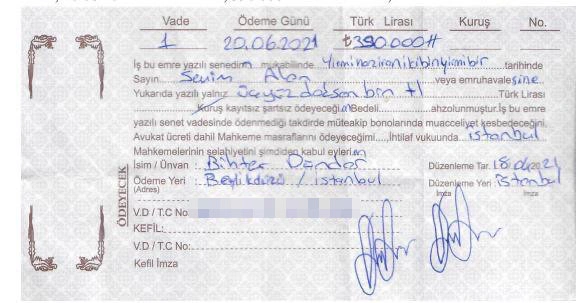 Vade Ödeme Günü Türk Lirası Kuruş No.
1 20.06.2021 ₺390.000#
İş bu emre yazılı senedim mukabilinde Yirmihaziranikibinyirmibir tarihinde
Sayın Sevim Alan veya emruhavalesine
Yukarıda yazılı yalnız üçyüzdoksan bin tl Türk Lirası
Kuruş kayıtsız şartsız ödeyeceğim Bedeli ahzolunmuştur. İş bu emre
yazılı senet vadesinde ödenmediği takdirde müteakip bonolarında muacceliyet kesbedeceğini,
Avukat ücreti dahil Mahkeme masraflarını ödeyeceğimi İhtilaf vukuunda istanbul
Mahkemelerinin selahiyetini şimdiden kabul eylerim
ÖDEYECEK
İsim / Ünvan : Bihter Dündar
Ödeme Yeri : Beylikdüzü / istanbul
(Adres)
V.D / T.C No:
KEFİL:
V.D / T.C No:
Kefil İmza
Düzenleme Tar. 18.04.2021
Düzenleme Yeri : İstanbul
İmza İmza